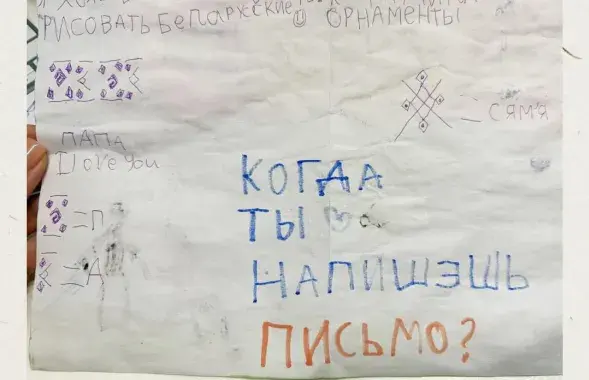 РИСОВАТЬ БЕЛАРУСКИЕ ОРНАМЕНТЫ
= СЯМ'Я
ПАПА
I love you
= П
= А
КОГДА
ТЫ
НАПИШЭШЬ
ПИСЬМО?